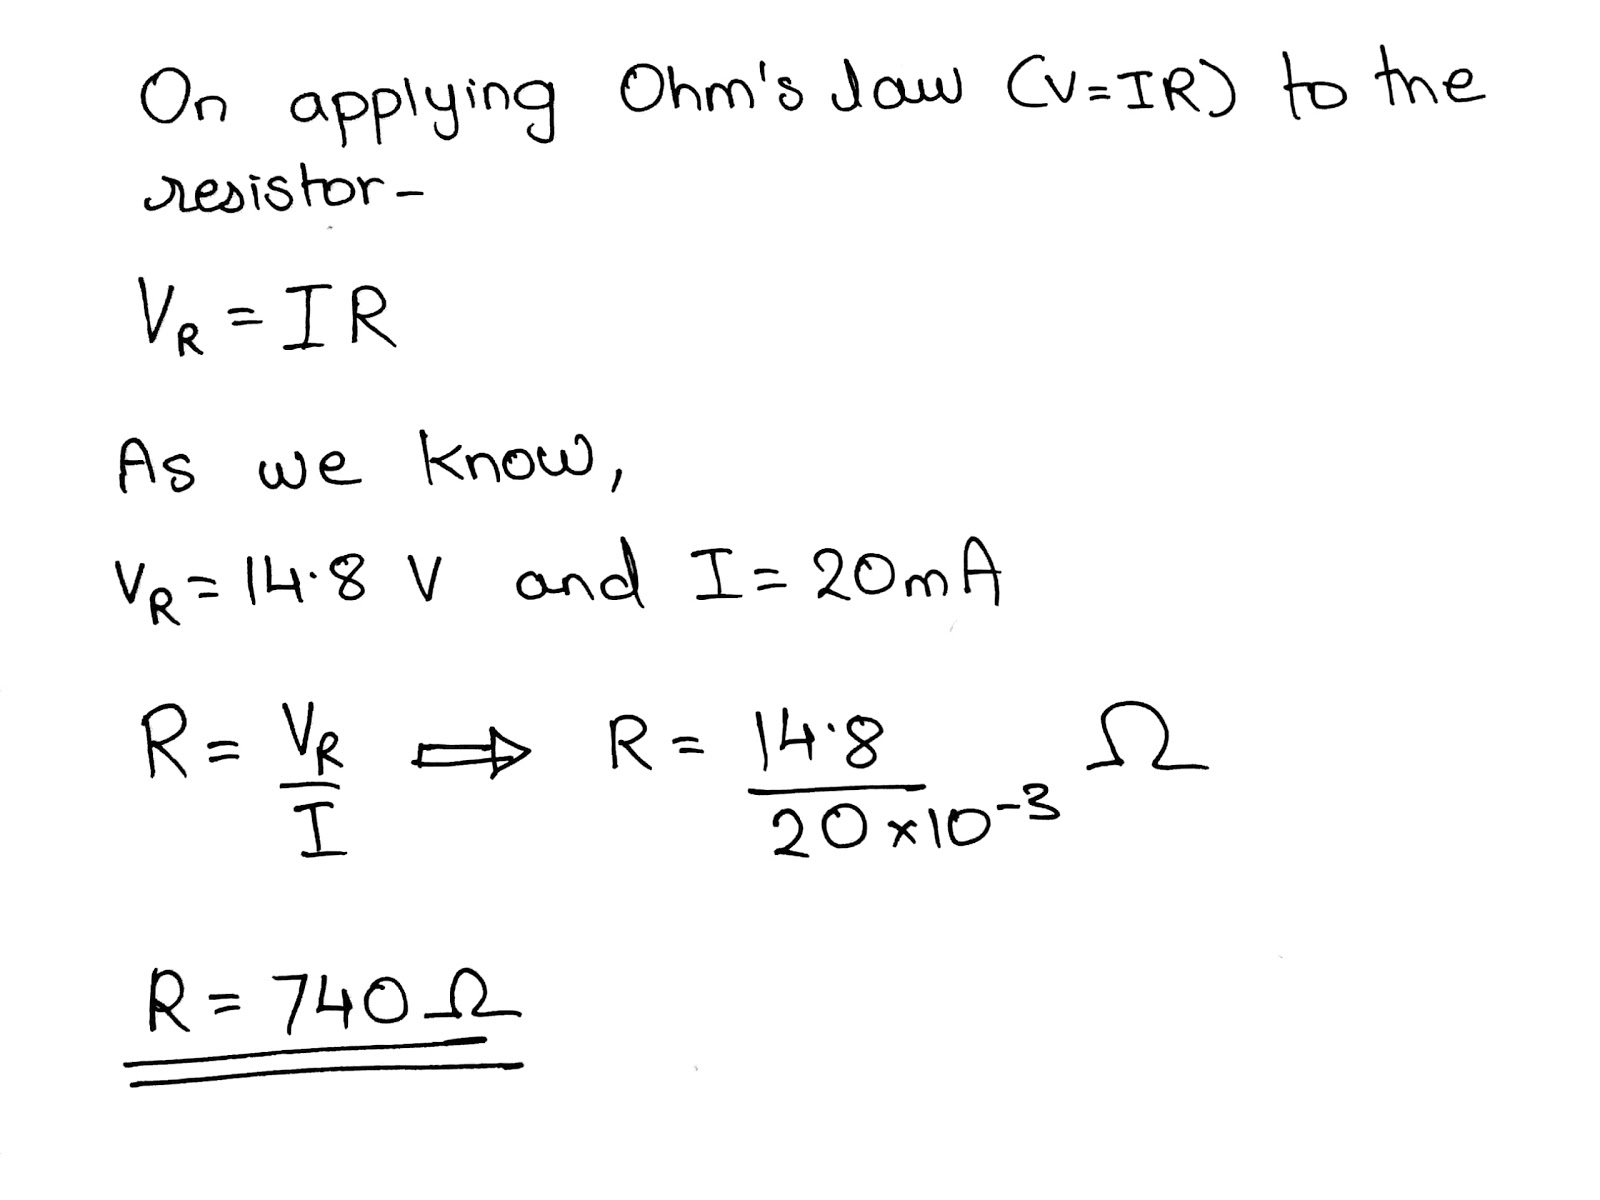 On applying Ohm's law (V=IR) to the
resistor-
V_R = IR
As we know,
V_R = 14.8 V and I = 20mA
R = V_R/I ⇒ R = 14.8/(20×10^-3) Ω
R = 740Ω